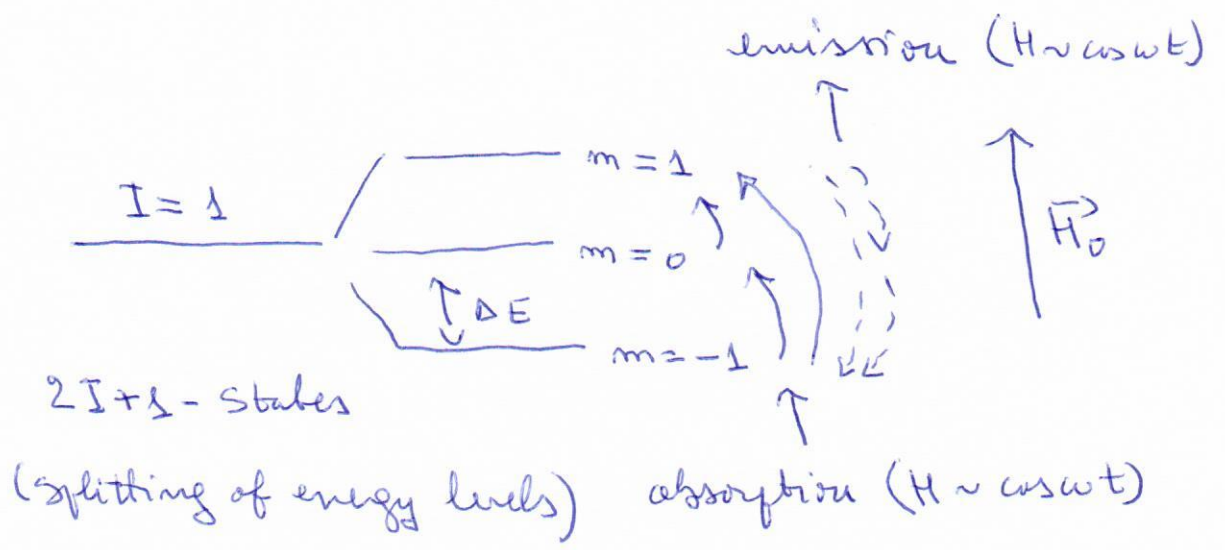 emission (H ~ cos ωt)
m = 1
I = 1
m = 0
H⃗₀
ΔE
m = -1
2I+1 - States
(Splitting of enegy levels) absorption (H ~ cos ωt)